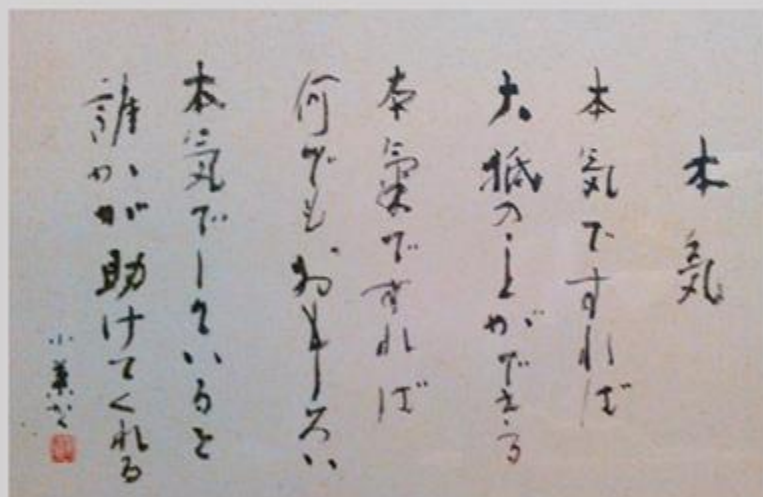 本気
本気ですれば
大抵のことができる
本氣ですれば
何でもおもしろい
本気でしていると
誰かが助けてくれる